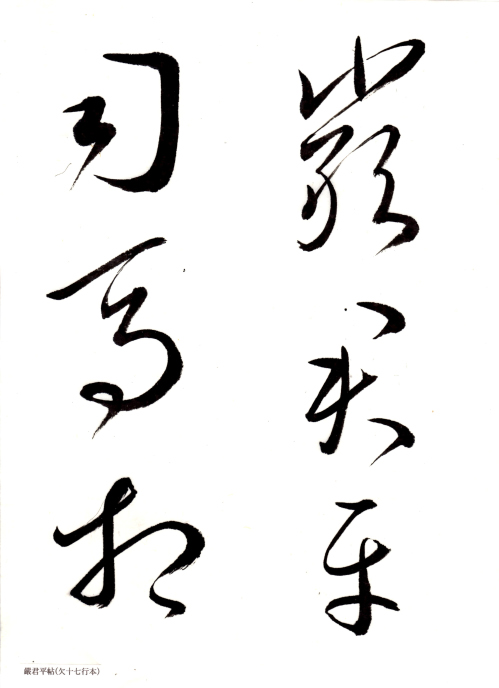 嚴君平
司馬相
嚴君平帖(欠十七行本)